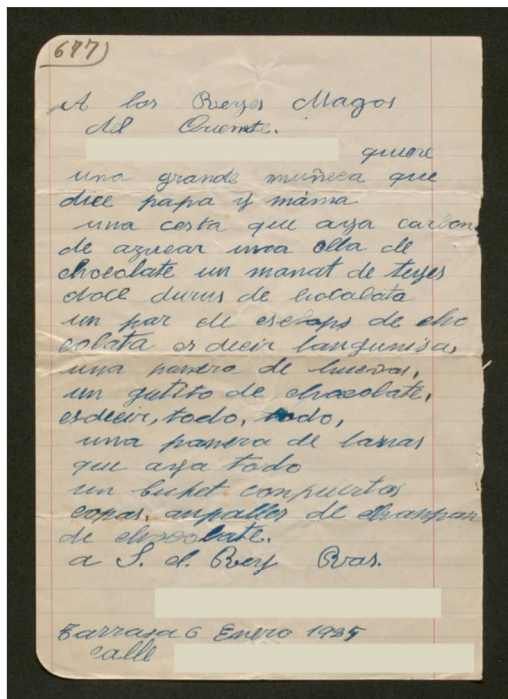 677)
A los Reyes Magos
del Oriente.
quiere
una grande muñeca que
dice papa y máma
una cesta que aya carbon
de azucar una olla de
chocolate un manat de teyes
doce durus de
un par de de cho
colata es decir langunisas
una panera de huevos,
un gatito de chocolate,
es decir, todo, todo,
una panera de
que aya todo
un bufet conpuertas
copas, anpalles de chanpan
de chocolate.
a S. el Rey
Tarrasa 6 Enero 1935
calle